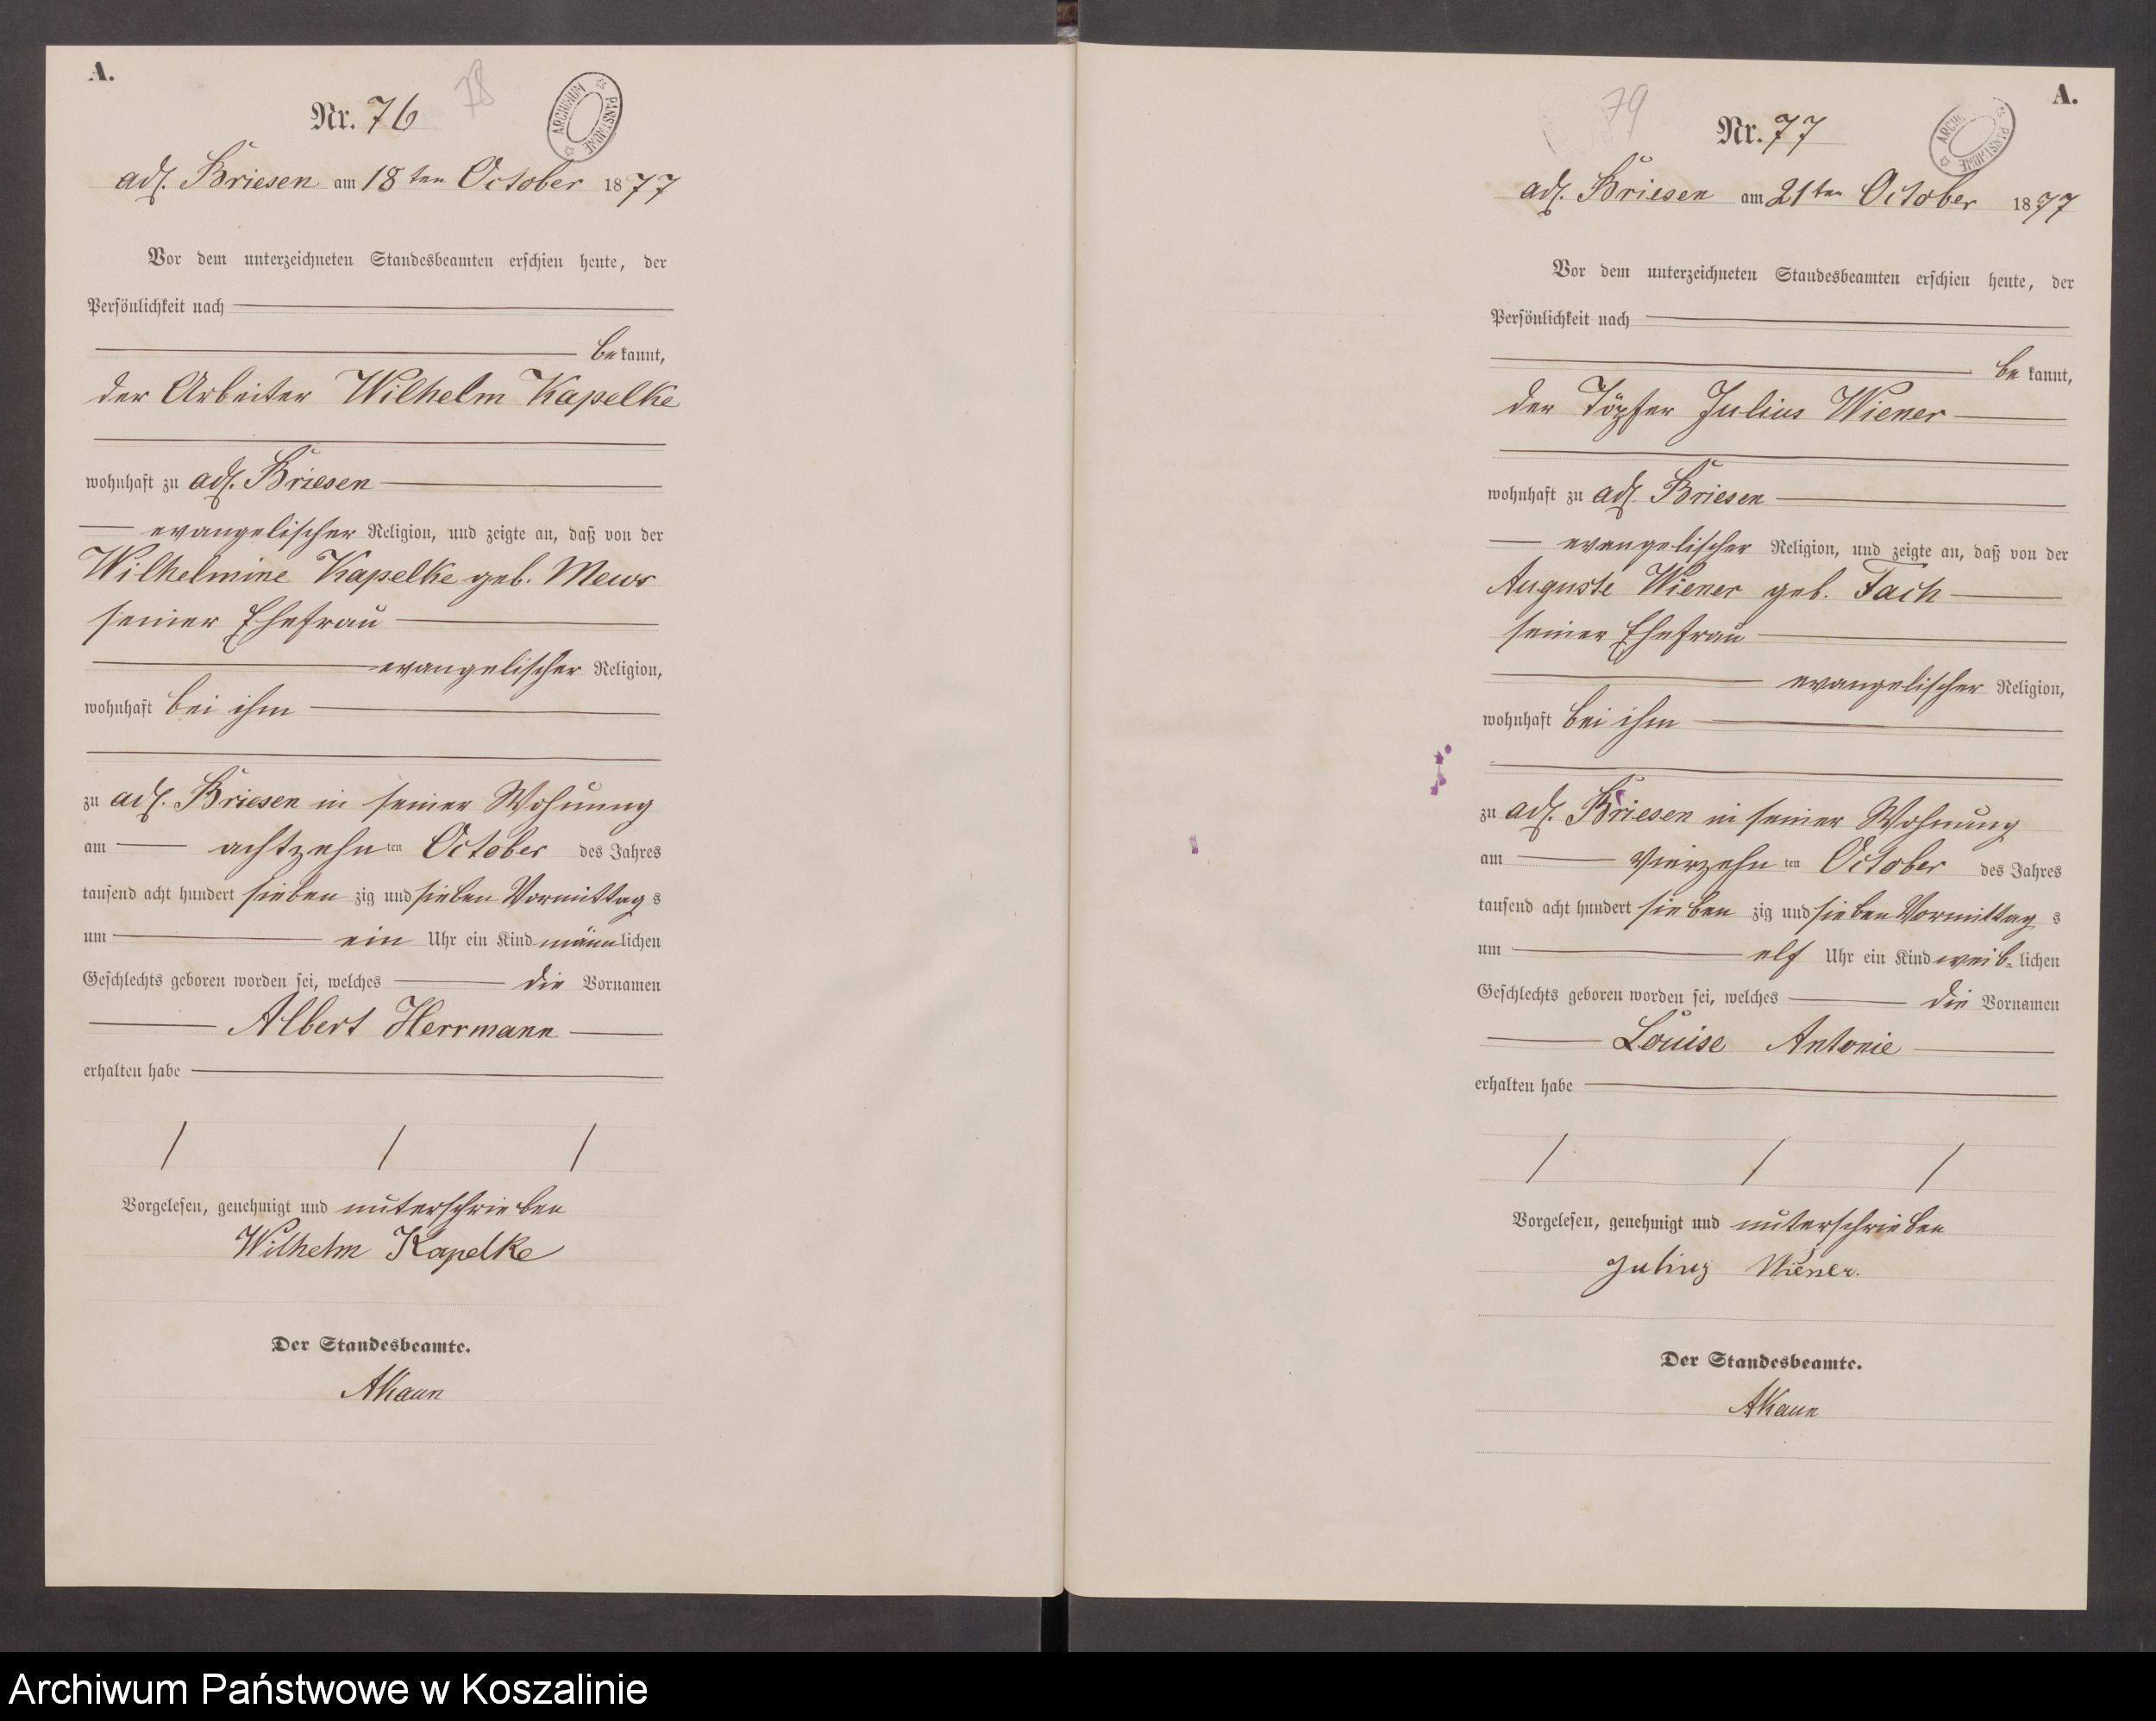 A.
Nr. 76
78
ARCHIWUM PAŃSTWOWE
adl. Briesen am 18ten October 1877
Vor dem unterzeichneten Standesbeamten erschien heute, der
Persönlichkeit nach
bekannt,
der Arbeiter Wilhelm Kapelke
wohnhaft zu adl. Briesen
evangelischer Religion, und zeigte an, daß von der
Wilhelmine Kapelke geb. Mews
seiner Ehefrau
evangelischer Religion,
wohnhaft bei ihm
zu adl. Briesen in seiner Wohnung
am achtzehnten October des Jahres
tausend acht hundert siebenzig und sieben Vormittags
um ein Uhr ein Kind männlichen
Geschlechts geboren worden sei, welches die Vornamen
Albert Herrmann
erhalten habe
Vorgelesen, genehmigt und unterschrieben
Wilhelm Kapelke
Der Standesbeamte.
AKaun
A.
79
Nr. 77
ARCHI PAŃSTWOWE
adl. Briesen am 21ten October 1877
Vor dem unterzeichneten Standesbeamten erschien heute, der
Persönlichkeit nach
bekannt,
der Töpfer Julius Wiener
wohnhaft zu adl. Briesen
evangelischer Religion, und zeigte an, daß von der
Auguste Wiener geb. Fach
seiner Ehefrau
evangelischer Religion,
wohnhaft bei ihm
zu adl. Briesen in seiner Wohnung
am vierzehnten October des Jahres
tausend acht hundert siebenzig und sieben Vormittags
um elf Uhr ein Kind weib-lichen
Geschlechts geboren worden sei, welches die Vornamen
Louise Antonie
erhalten habe
Vorgelesen, genehmigt und unterschrieben
Julius Wiener.
Der Standesbeamte.
AKaun
Archiwum Państwowe w Koszalinie